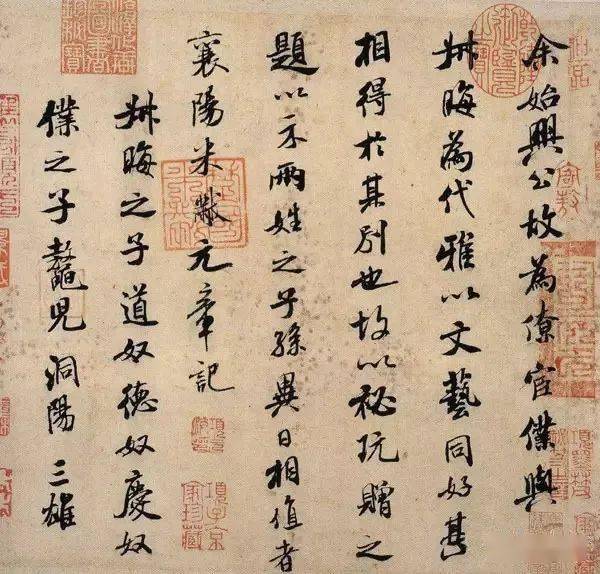 余始興公故為僚宦僕與
叔晦為代雅以文藝同好甚
相得於其別也故以秘玩贈之
題以示兩姓之子孫異日相值者
襄陽米黻元章記
叔晦之子道奴德奴慶奴
僕之子鼇兒洞陽三雄
項子京
家珍藏